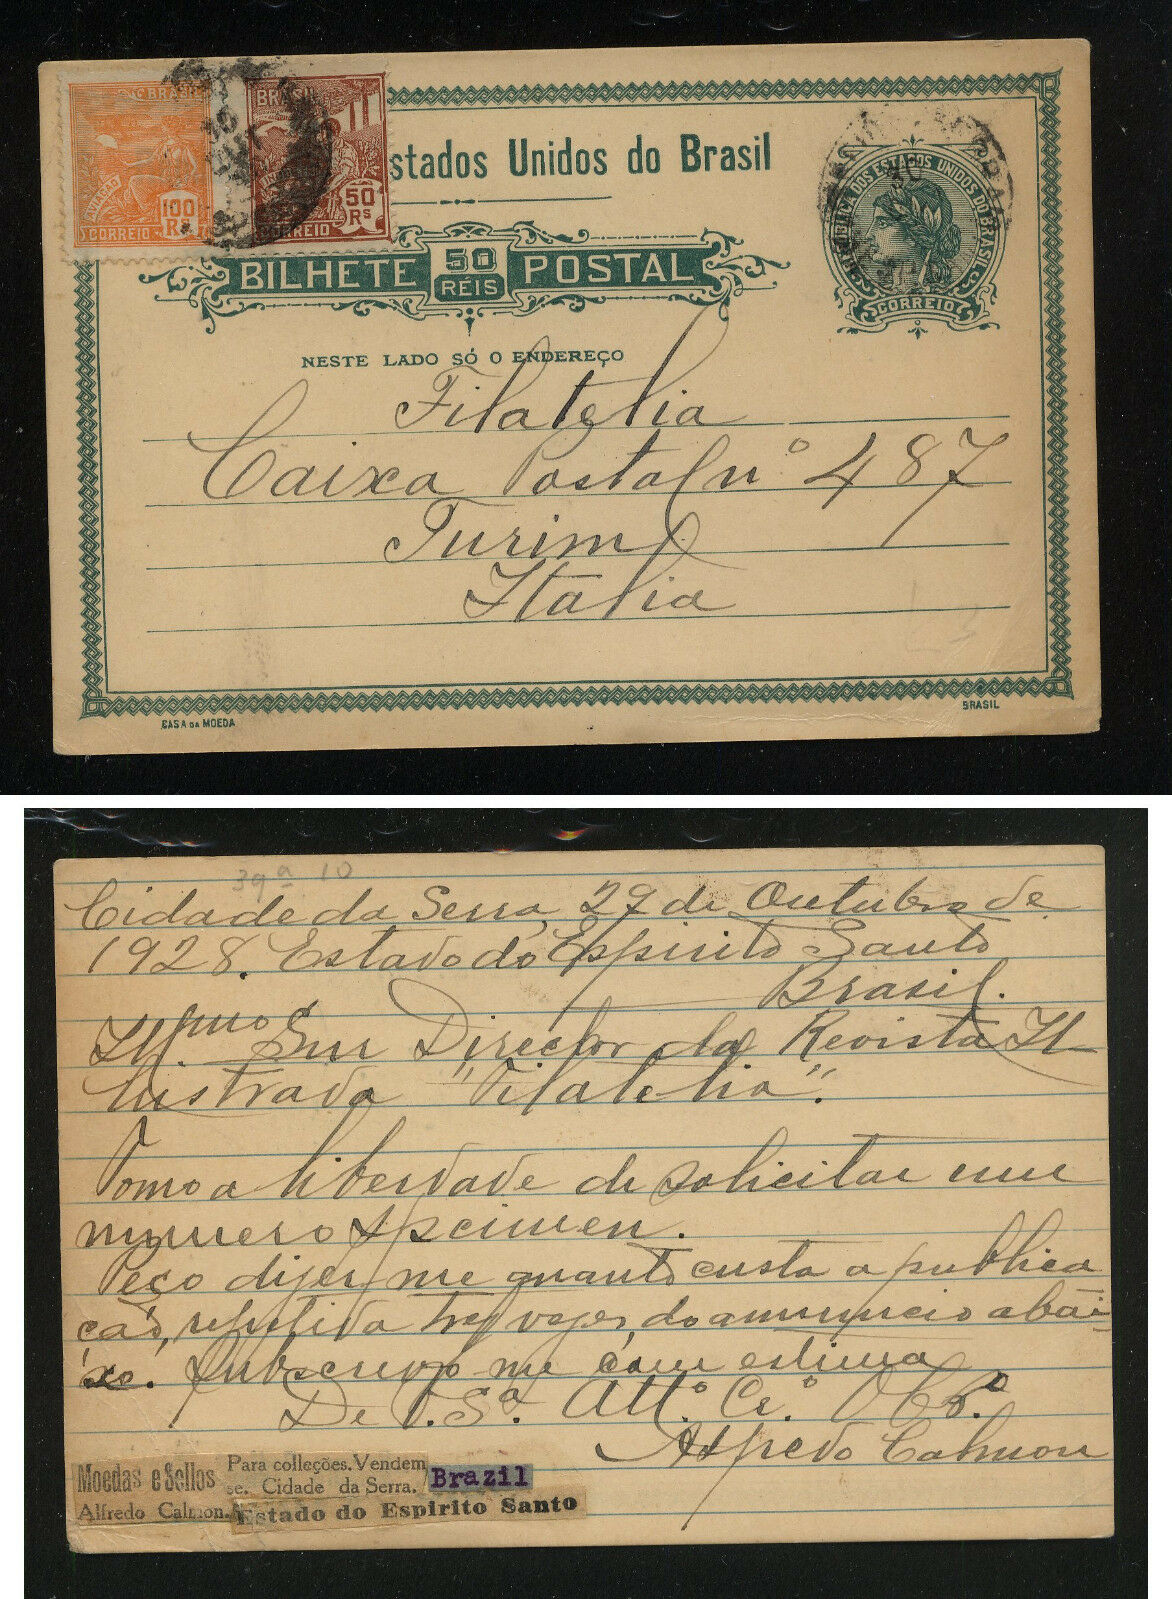 BRASIL
AVIAÇÃO
100 Rs
CORREIO
BRASIL
50 Rs
CORREIO
stados Unidos do Brasil
BILHETE 50 RÉIS POSTAL
REPUBLICA DOS ESTADOS UNIDOS DO BRASIL
CORREIO
NESTE LADO SÓ O ENDEREÇO
Filatelia
Caixa Postal nº 487
Turim
Italia
CASA DA MOEDA
BRASIL
39ª 10
Cidade da Serra, 29 de Outubro de
1928. Estado do Espirito Santo
Brasil.
Illmo Snr Director da Revista Il-
lustrada "Filatelia".
Tomo a liberdade de solicitar um
numero specimen.
Peço dizer me quanto custa a publica
ção, repetida trez vezes, do annuncio abai-
xo. Subscrevo me com estima
De V. Sª. Attº Cº. Obrº
Alfredo Calmon
Moedas e Sellos
Para collecções. Vendem
se. Cidade da Serra.
Brazil
Alfredo Calmon.
Estado do Espirito Santo